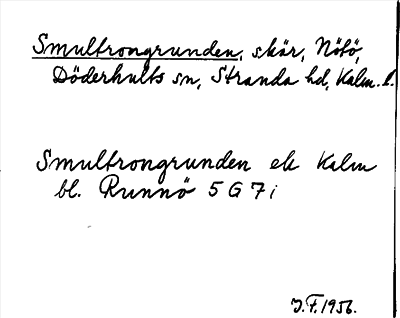 Smultrongrunden, skär, Nötö,
Döderhults sn, Stranda hd, Kalm. l.
Smultrongrunden ek Kalm
bl. Runnö 5 G 7 i
J.F. 1956.